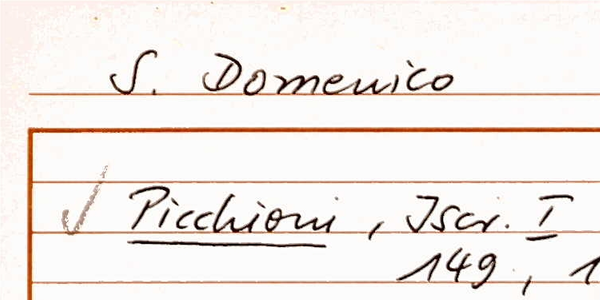 S. Domenico
Picchioni, Iscr. I
149, 1